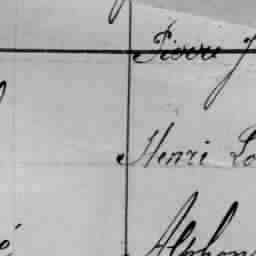 Pierre J
Henri Lo
é Alphons